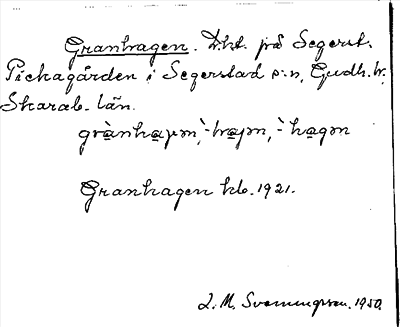 Granhagen. Lht. på Segerst.
Pickagården i Segerstad s:n, Gudh. hr,
Skarab. län.
grànhaγən, -haγən, -hagən
Granhagen hlb. 1921.
L. M. Svenungsson. 1950.